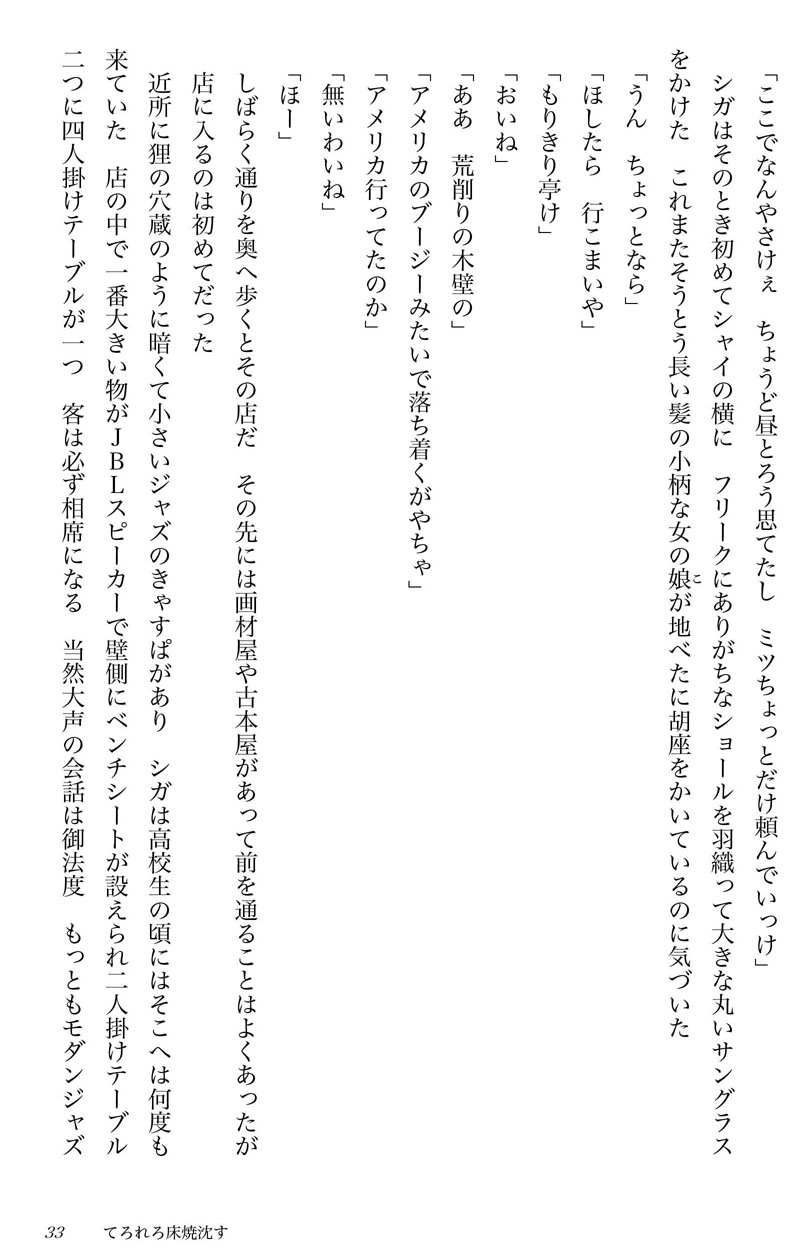 「ここでなんやさけぇ　ちょうど昼とろう思てたし　ミツちょっとだけ頼んでいっけ」
　シガはそのとき初めてシャイの横に　フリークにありがちなショールを羽織って大きな丸いサングラス
をかけた　これまたそうとう長い髪の小柄な女の娘が地べたに胡座をかいているのに気づいた
こ
「うん　ちょっとなら」
「ほしたら　行こまいや」
「もりきり亭け」
「おいね」
「ああ　荒削りの木壁の」
「アメリカのブージーみたいで落ち着くがやちゃ」
「アメリカ行ってたのか」
「無いわいね」
「ほー」
　しばらく通りを奥へ歩くとその店だ　その先には画材屋や古本屋があって前を通ることはよくあったが
店に入るのは初めてだった
　近所に狸の穴蔵のように暗くて小さいジャズのきゃすぱがあり　シガは高校生の頃にはそこへは何度も
来ていた　店の中で一番大きい物がＪＢＬスピーカーで壁側にベンチシートが設えられ二人掛けテーブル
二つに四人掛けテーブルが一つ　客は必ず相席になる　当然大声の会話は御法度　もっともモダンジャズ
33　てろれろ床焼沈す